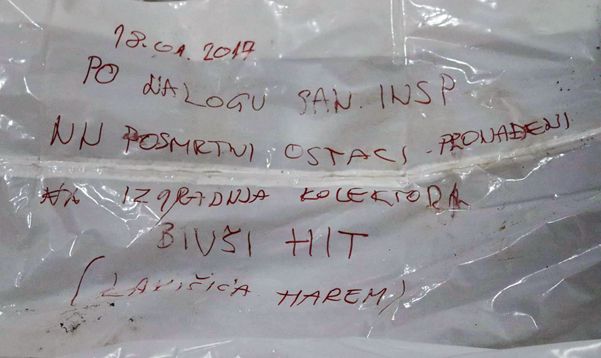 18.01.2017
PO NALOGU SAN. INSP
NN POSMRTNI OSTACI - PRONAĐENI
NA IZGRADNJA KOLEKTORA
BIVŠI HIT
(LAVIČIĆA HAREM)